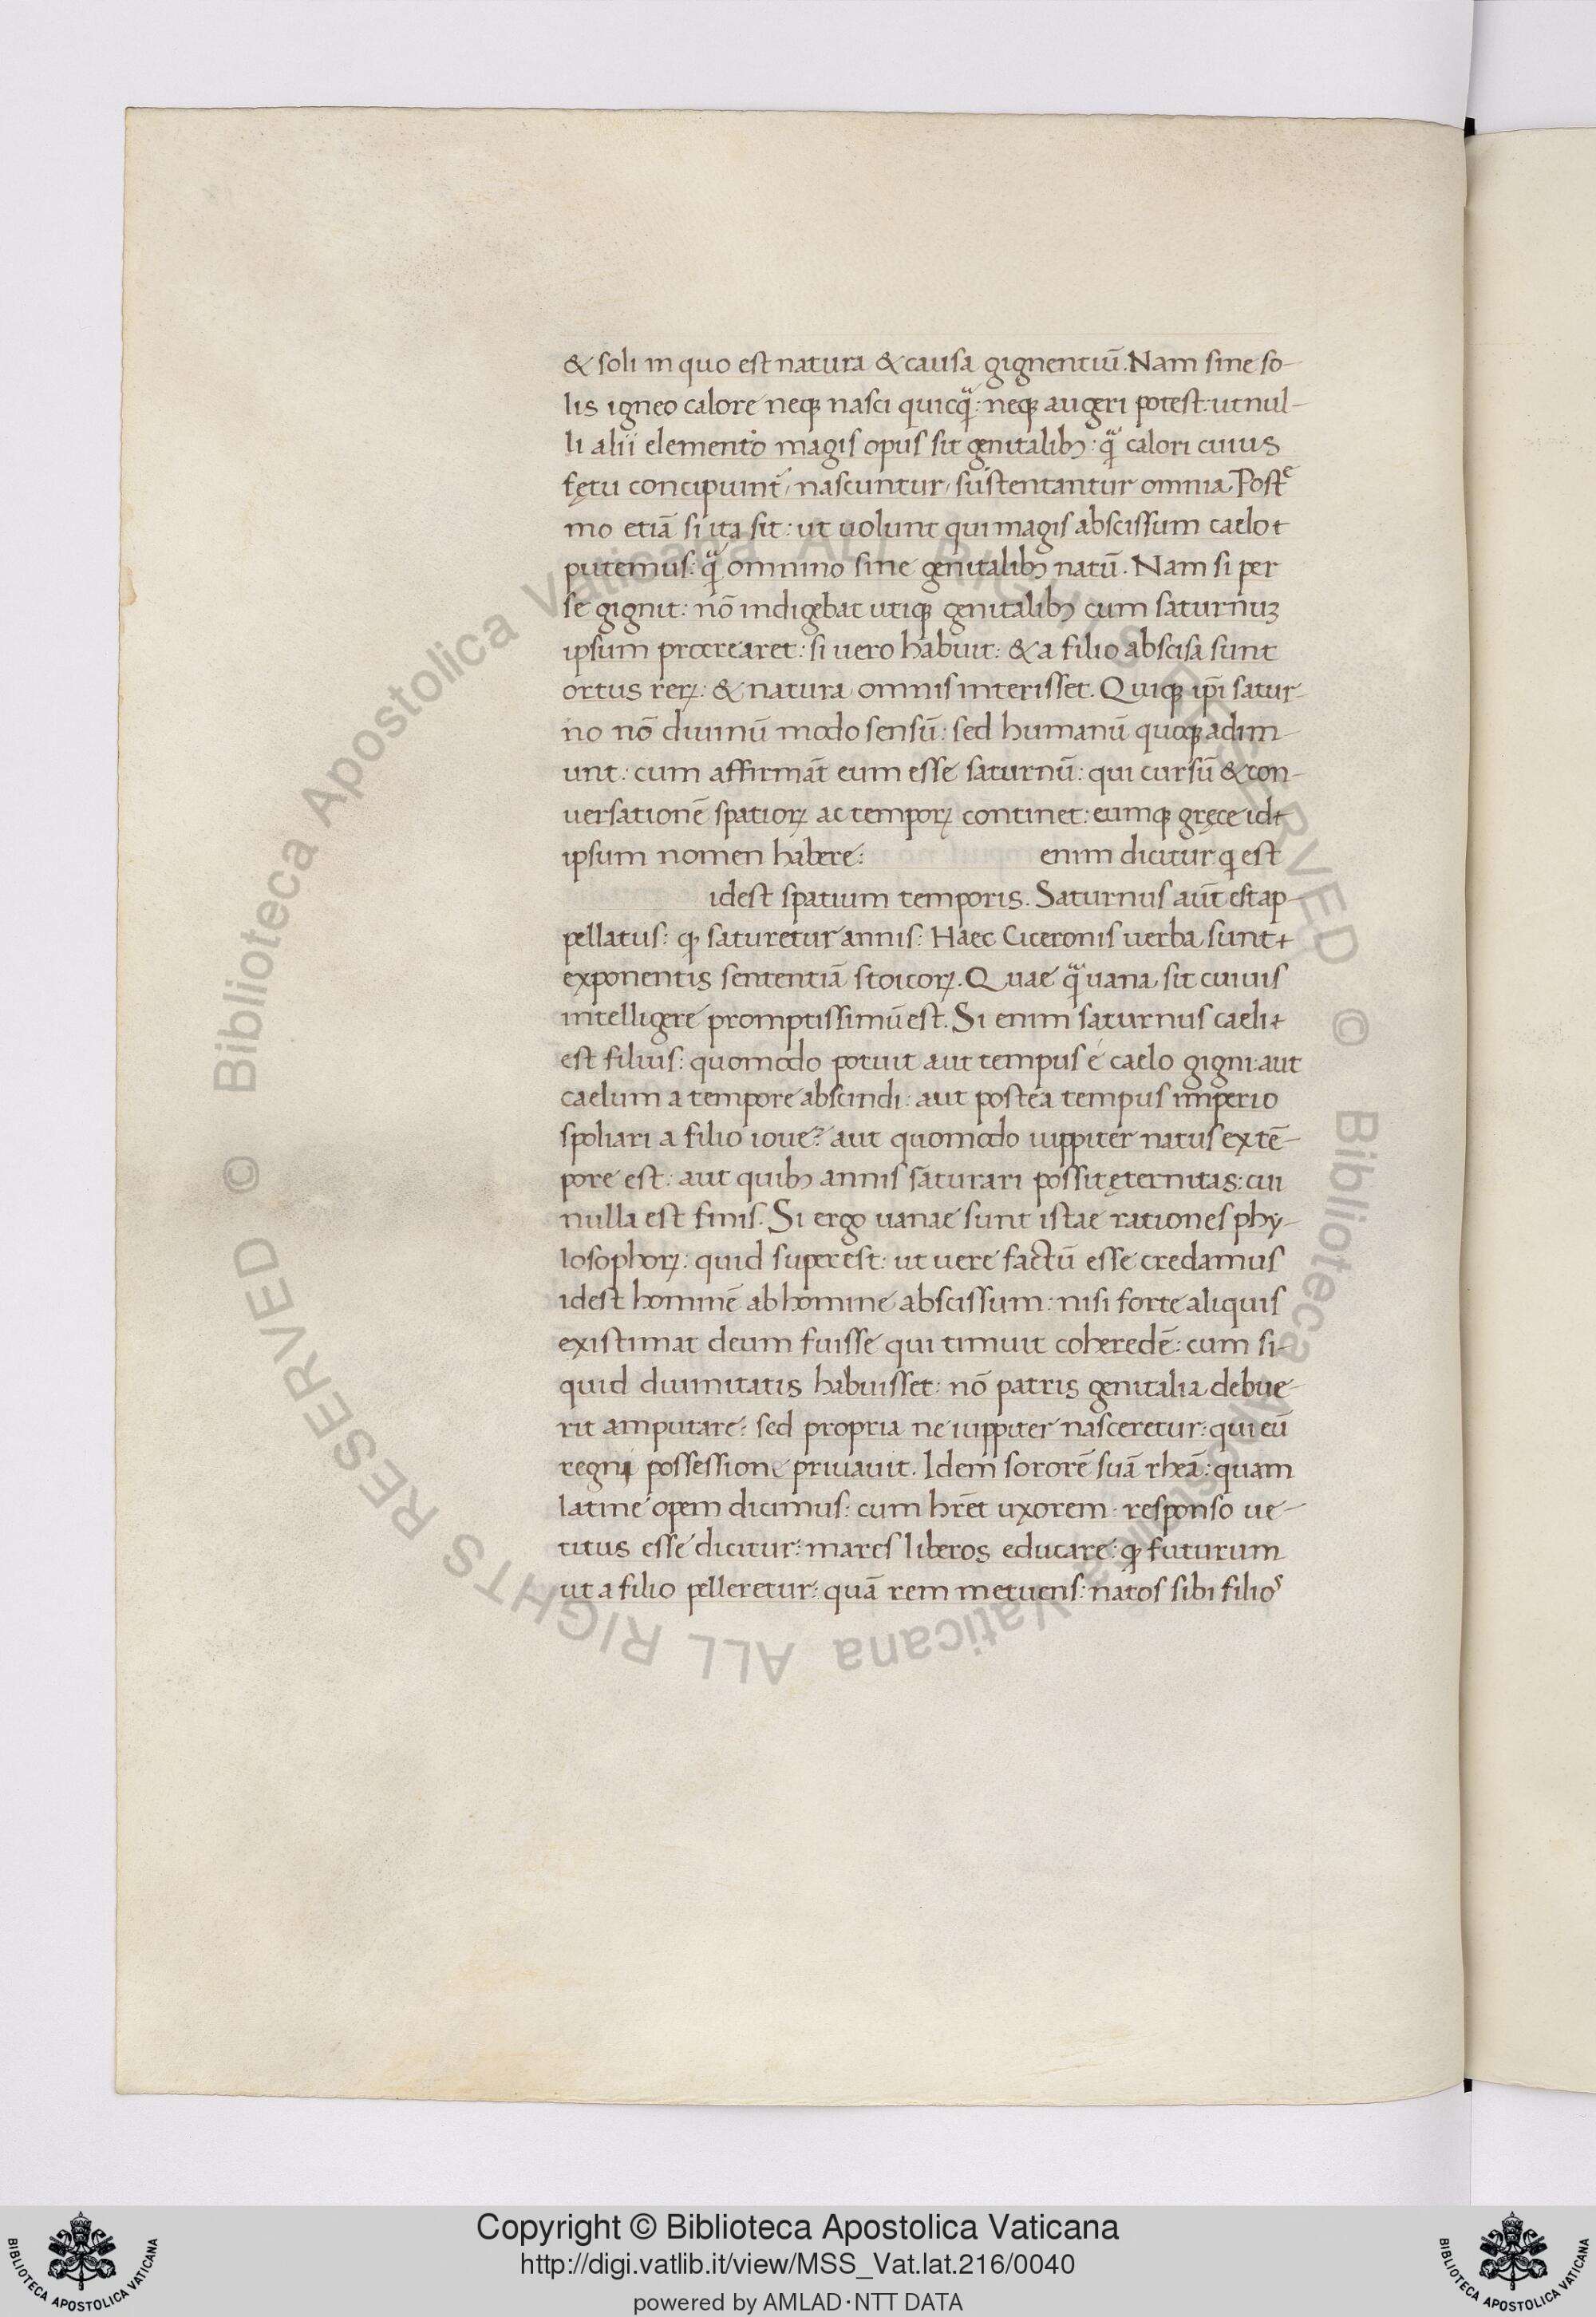 & soli in quo est natura & causa gignentiū. Nam sine so-
lis igneo calore neq; nasci quicq̈: neq; augeri potest: ut nul-
li alii elemento magis opus sit genitalibꝫ: q̈ calori cuius
fętu concipiunt, nascuntur, sustentantur omnia. Postᵉ
mo etiā si ita sit: ut uolunt qui magis abscissum caelo
putemus: q̈ omnino sine genitalibꝫ natū. Nam si per
se gignit: nō indigebat utiq; genitalibꝫ cum saturnuꝫ
ipsum procrearet: si uero habuit: & a filio abscisa sunt
ortus reꝝ: & natura omnis interisset. Quiq; ip̄i satur-
no nō diuinū modo sensū: sed humanū quoq; adim-
unt: cum affirmāt eum esse saturnū: qui cursū & con-
uersationē spatioꝝ ac tempoꝝ continet: eumq; gręce id
ipsum nomen habere: enim dicitur q; est
idest spatium temporis. Saturnus aūt est ap-
pellatus: q; saturetur annis: Haec Ciceronis uerba sunt
exponentis sententiā stoicoꝝ. Quae q̈ uana sit cuiuis
intelligere promptissimū est. Si enim saturnus caeli
est filius: quomodo potuit aut tempus é caelo gigni: aut
caelum a tempore abscindi: aut postea tempus imperio
spoliari a filio ioue? aut quomodo iuppiter natus ex tē-
pore est: aut quibꝫ annis saturari possit ęternitas: cui
nulla est finis. Si ergo uanae sunt istae rationes phy-
losophoꝝ: quid superest: ut uere factū esse credamus
idest hominē ab homine abscissum: nisi forte aliquis
existimat deum fuisse qui timuit coheredē: cum si-
quid diuinitatis habuisset: nō patris genitalia debue-
rit amputare: sed propria ne iuppiter nasceretur: qui eū
regni possessione priuauit. Idem sororē suā rheā: quam
latine opem dicimus: cum hr̄et uxorem: responso ue-
titus esse dicitur: mares liberos educare: q; futurum
ut a filio pelleretur: quā rem metuens: natos sibi filioˢ
© Biblioteca Apostolica Vaticana ALL RIGHTS RESERVED © Biblioteca Apostolica Vaticana ALL RIGHTS RESERVED
BIBLIOTECA APOSTOLICA VATICANA
Copyright © Biblioteca Apostolica Vaticana
http://digi.vatlib.it/view/MSS_Vat.lat.216/0040
powered by AMLAD·NTT DATA
BIBLIOTECA APOSTOLICA VATICANA